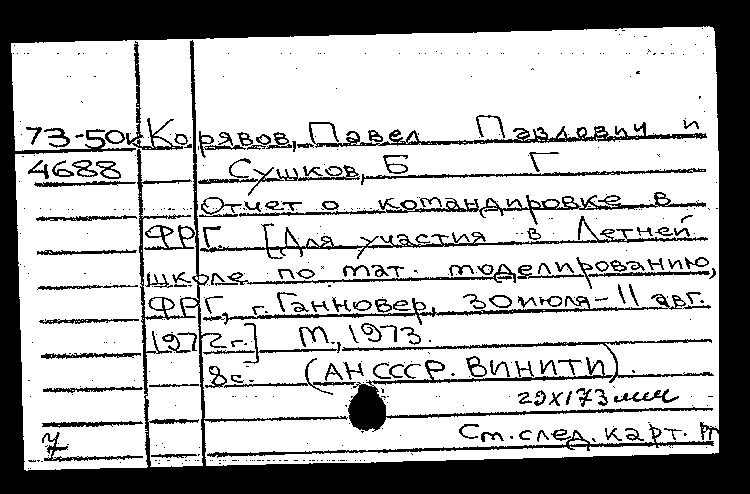 73-50к Корявов, Павел Павлович и
4688 Сушков, Б Г
Отчет о командировке в
ФРГ. [Для участия в Летней
школе по мат. моделированию,
ФРГ, г. Ганновер, 30 июля - 11 авг.
1972 г.] М., 1973.
8 с. (АН СССР. ВИНИТИ).
29х173 мм
7 См. след. карт.